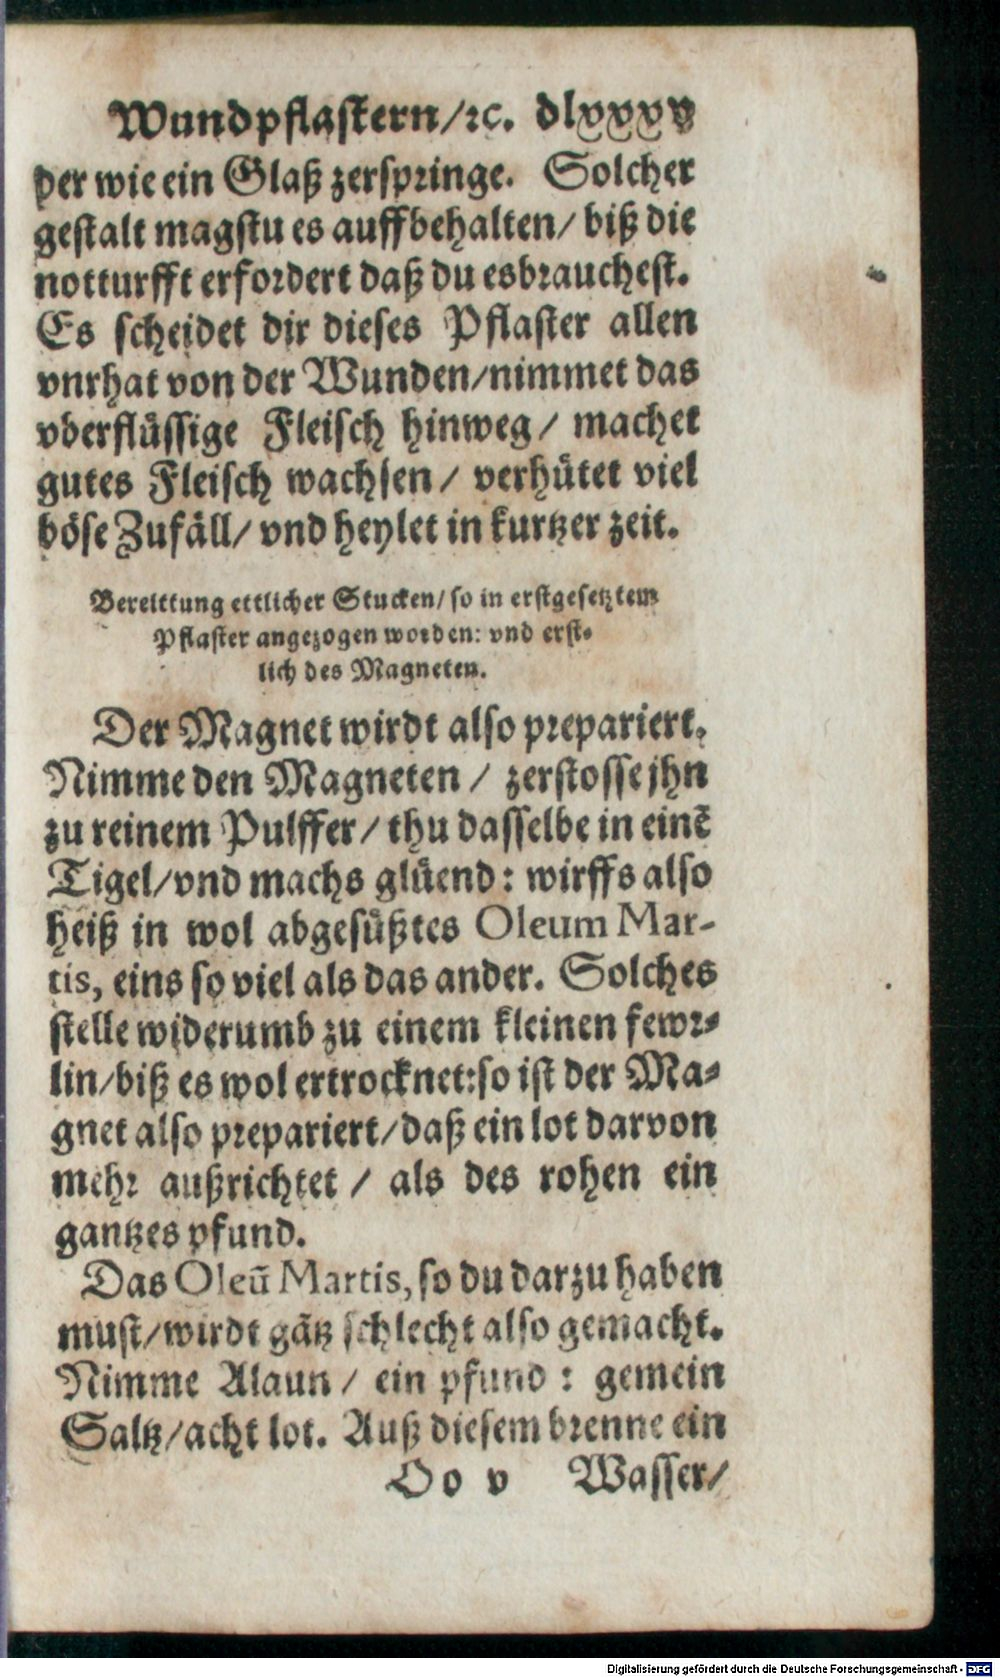 Wundpflastern/ꝛc. dlxxxv
der wie ein Glaß zerspringe. Solcher
gestalt magstu es auffbehalten/ biß die
notturfft erfordert daß du es brauchest.
Es scheidet dir dieses Pflaster allen
vnrhat von der Wunden/nimmet das
vberflüssige Fleisch hinweg/ machet
gutes Fleisch wachsen/ verhütet viel
böse Zufäll/ vnd heylet in kurtzer zeit.
Bereittung ettlicher Stucken/ so in erstgesetztem
Pflaster angezogen worden: vnd erst-
lich des Magneten.
Der Magnet wirdt also prepariert.
Nimme den Magneten / zerstosse jhn
zu reinem Pulffer/ thu dasselbe in einē
Tigel/vnd machs glüend: wirffs also
heiß in wol abgesüßtes Oleum Mar-
tis, eins so viel als das ander. Solches
stelle widerumb zu einem kleinen fewr-
lin/biß es wol ertrocknet:so ist der Ma-
gnet also prepariert/daß ein lot darvon
mehr außrichtet / als des rohen ein
gantzes pfund.
Das Oleū Martis, so du darzu haben
must/wirdt gātz schlecht also gemacht.
Nimme Alaun / ein pfund : gemein
Saltz/acht lot. Auß diesem brenne ein
Oo v Wasser/
Digitalisierung gefördert durch die Deutsche Forschungsgemeinschaft - DFG